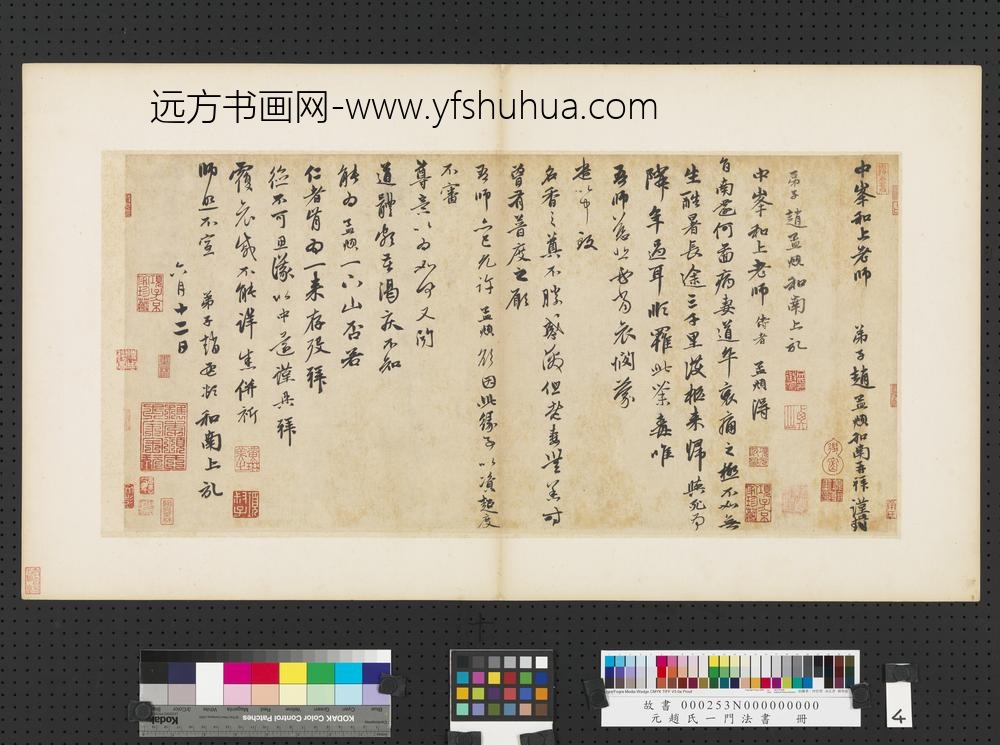 远方书画网-www.yfshuhua.com
中峯和上老师 弟子趙孟頫和南再拜謹封
弟子趙孟頫和南上記
中峯和上老师侍者 孟頫得
旨南還何啚病妻道卒哀痛之極不如無
生酷暑長途三千里護柩来歸與死為
隣年過耳順罹此荼毒唯
吾师慈悲必當哀憫蒙
遣以中致
名香之奠不勝感激但老妻無恙時
曾有普度之願
吾师亦已允許孟頫欲因此緣事以資超度
不審
尊意以為如何又聞
道體頗苦渴疾不知
能為孟頫一下山否若
仁者肯為一来存歿拜
德不可思議以中還謹具拜
覆哀感不能詳悉併祈
师照不宣 弟子趙孟頫和南上記
六月十二日
KODAK Color Control Patches
故書 000253N000000000
元趙氏一門法書 冊
4